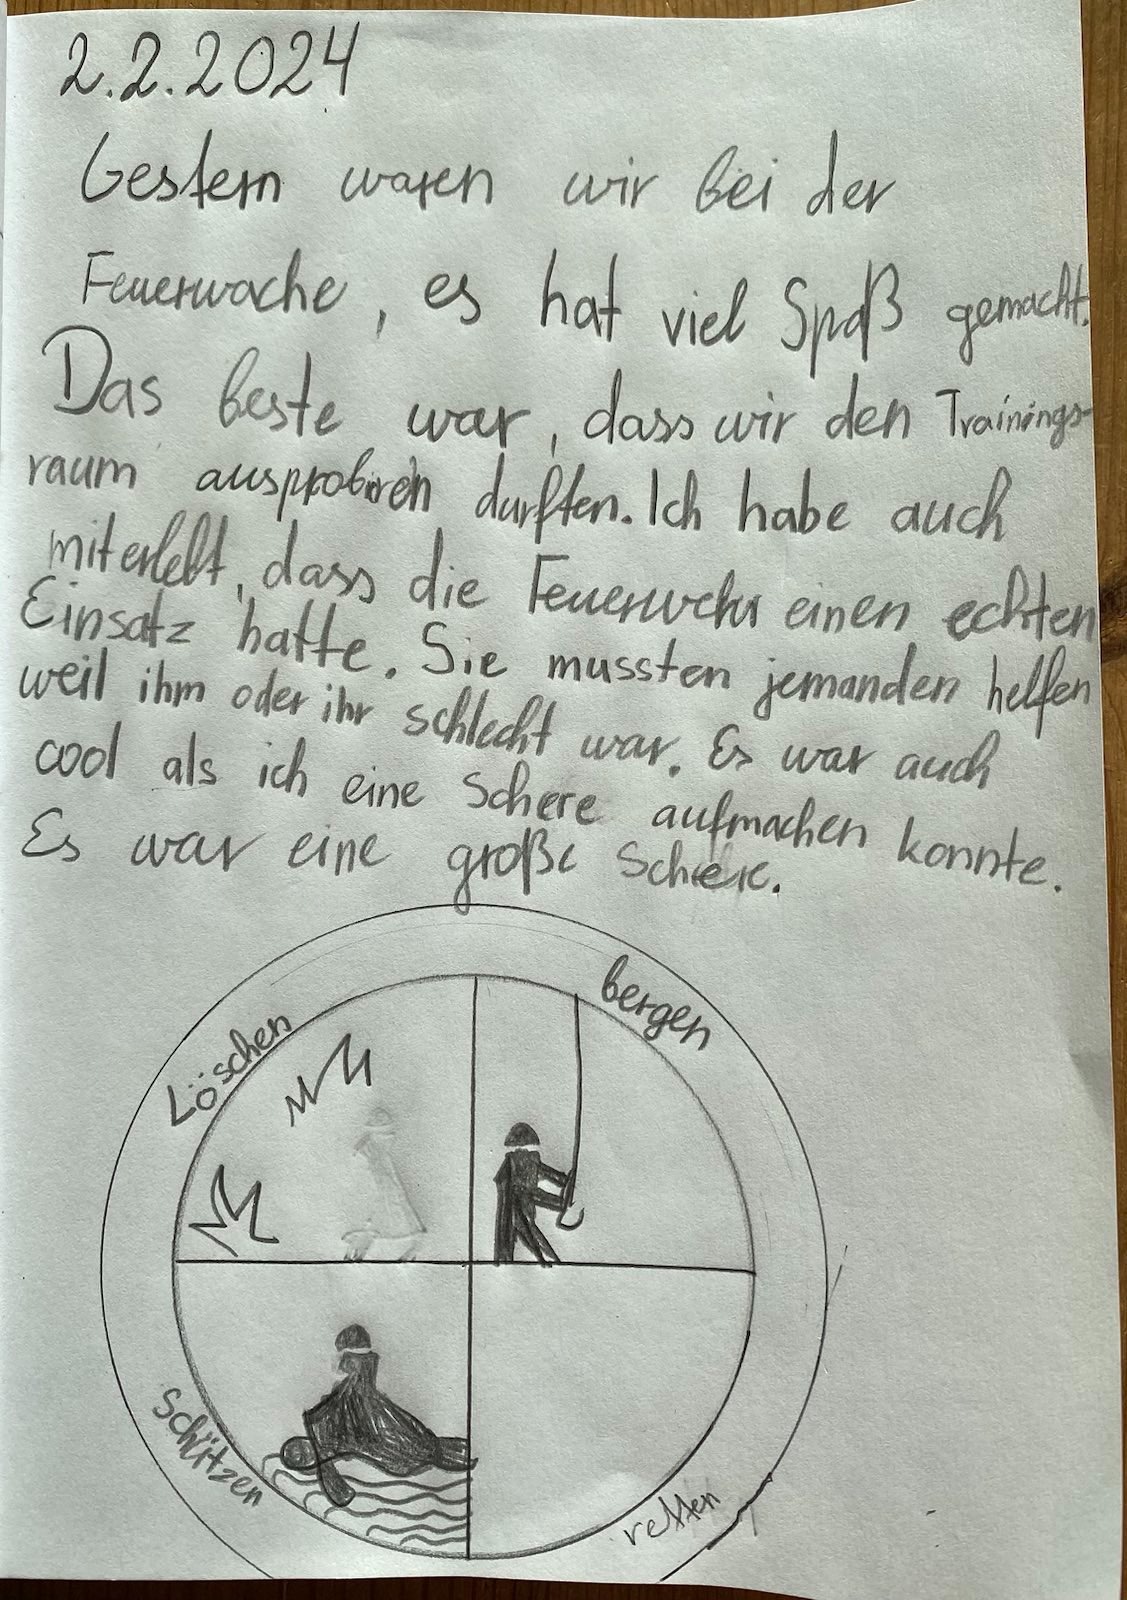 2.2.2024
Gestern waren wir bei der
Feuerwache, es hat viel Spaß gemacht.
Das beste war, dass wir den Trainings-
raum ausprobiren durften. Ich habe auch
miterlebt, dass die Feuerwehr einen echten
Einsatz hatte. Sie mussten jemanden helfen
weil ihm oder ihr schlecht war. Es war auch
cool als ich eine Schere aufmachen konnte.
Es war eine große Schere.
Löschen
bergen
Schützen
retten